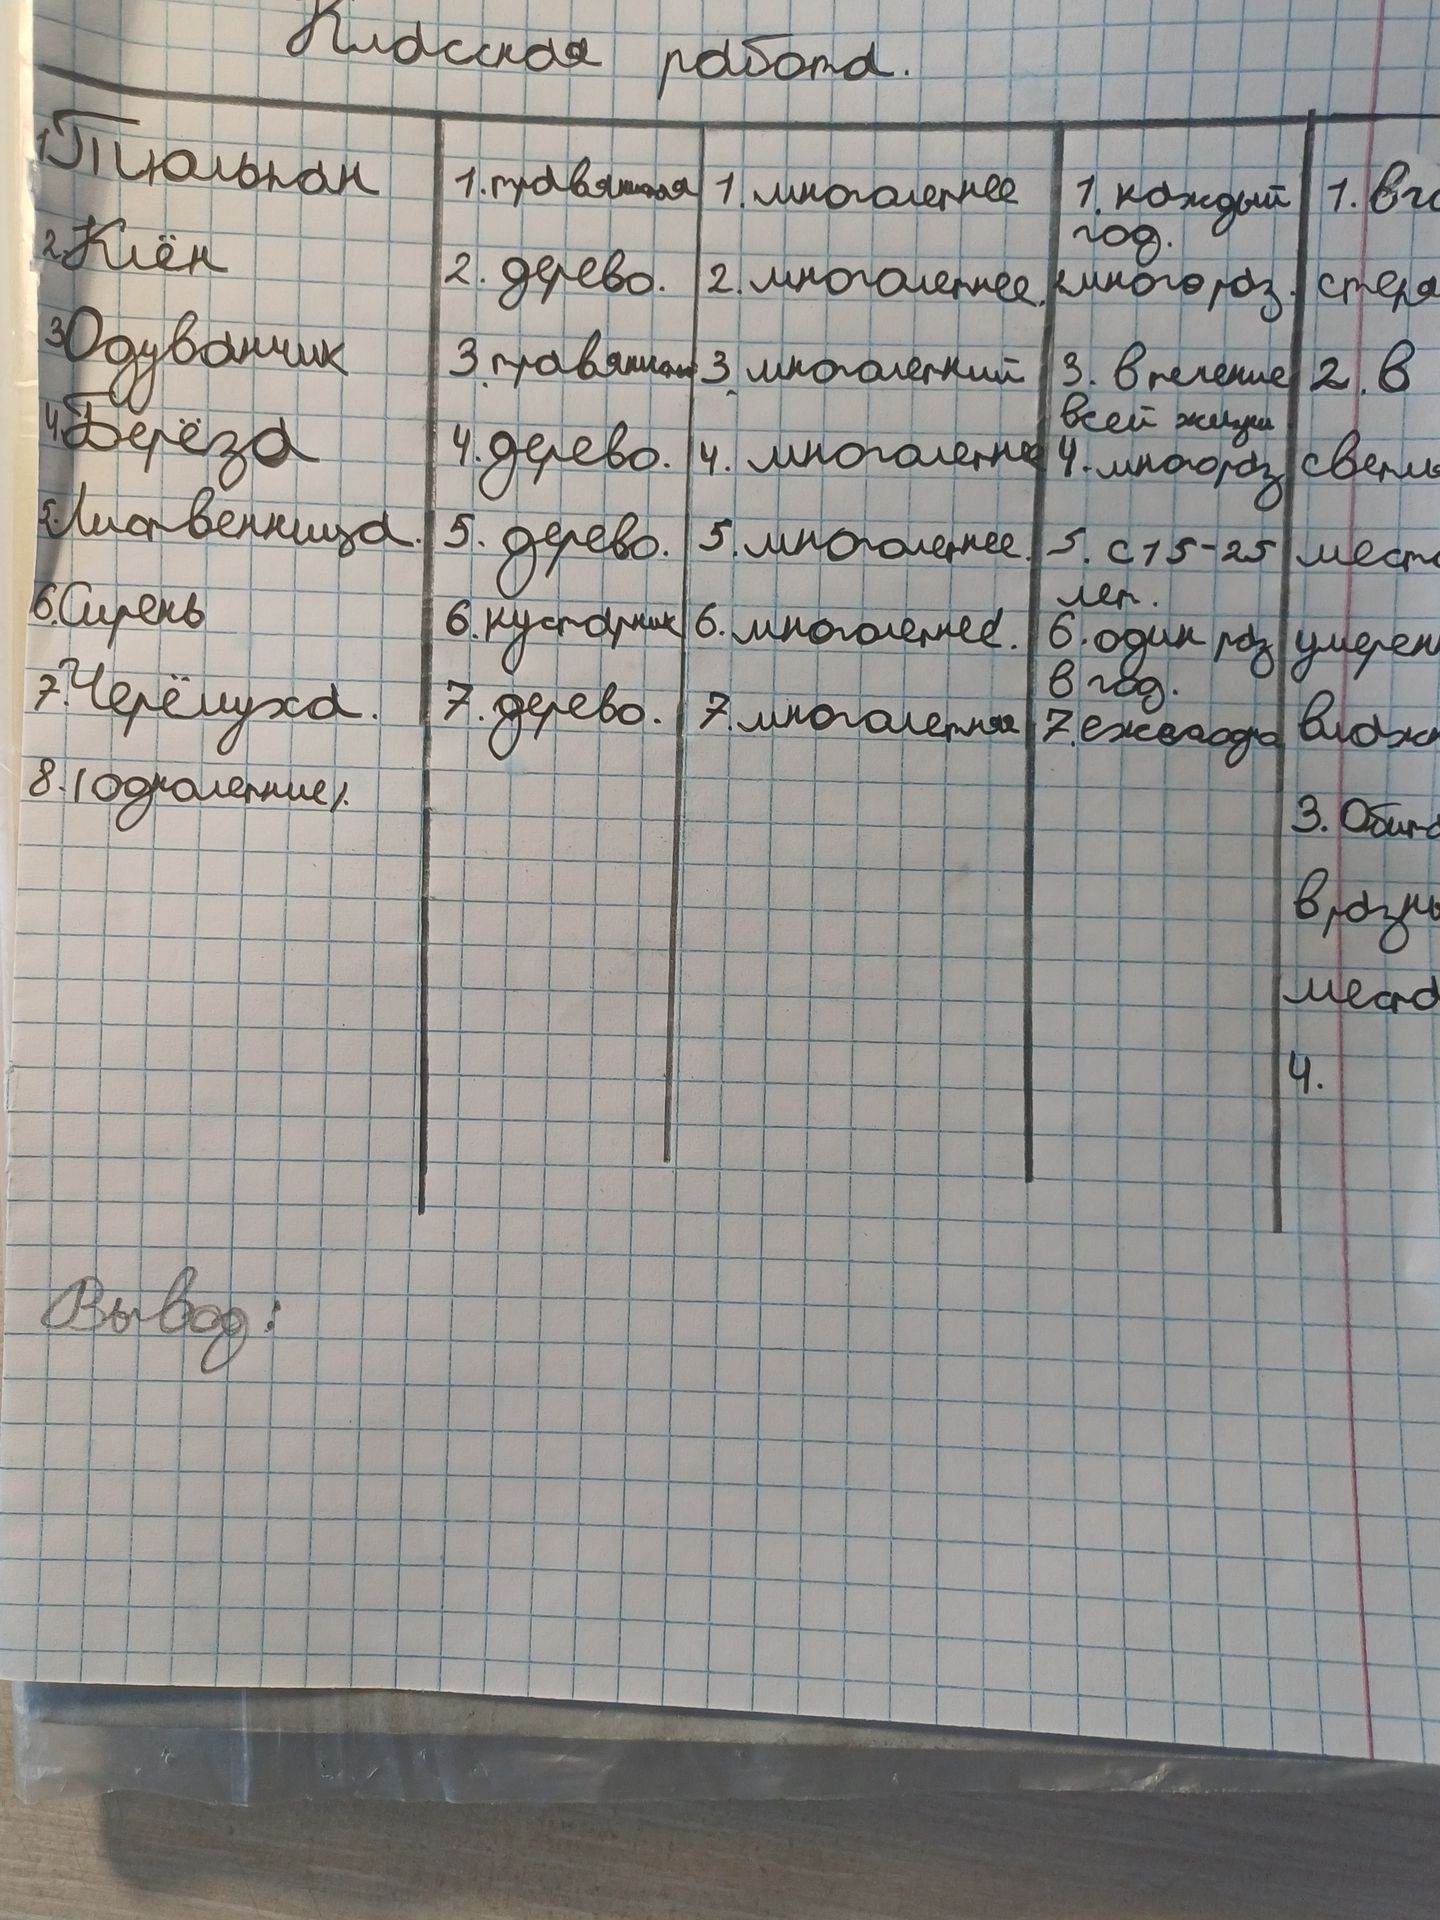 Классная работа.
1. Тюльпан 1. травянистая 1. многолетнее 1. каждый
год.
2. Клён 2. дерево. 2. многолетнее. 2. много раз. степя
3. Одуванчик 3. травянист 3. многолетний 3. в течение 2. в
всей жизни
4. Берёза 4. дерево. 4. многолетнее 4. много раз светлы
5. Лиственница. 5. дерево. 5. многолетнее. 5. с 15-25 места
лет.
6. Сирень 6. кустарник 6. многолетнее. 6. один раз умерен
в год.
7. Черёмуха. 7. дерево. 7. многолетняя 7. ежегодно влажн
8. (однолетние).
3. Обита
в разны
места
4.
Вывод: